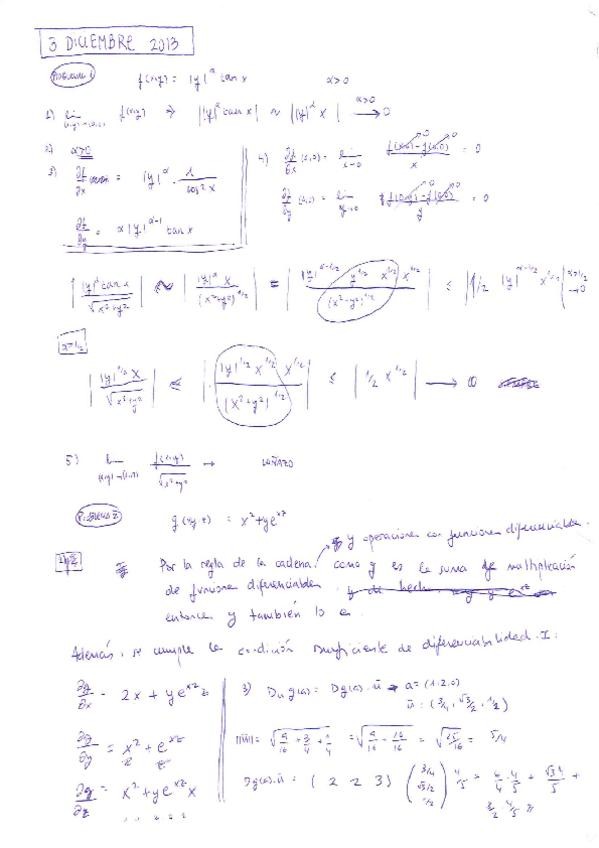 3 DICIEMBRE 2013
Problema 1 f(x,y) = |y|^α tan x α>0
1) lim (x,y)→(0,0) f(x,y) ⇒ ||y|^α tan x| ~ ||y|^α x| →^(α>0) 0
2) α>0
3) ∂f/∂x = |y|^α · 1/cos²x
∂f/∂y = α|y|^(α-1) tan x
4) ∂f/∂x (0,0) = lim x→0 (f(x,0) - f(0,0))/x = 0
∂f/∂y (0,0) = lim y→0 (f(0,y) - f(0,0))/y = 0
| |y|^α tan x / √(x²+y²) | ~ | |y|^α x / (x²+y²)^(1/2) | = | |y|^(α-1/2) y^(1/2) x^(1/2) x^(1/2) / (x²+y²)^(1/2) | ≤ | 1/2 |y|^(α-1/2) x^(1/2) | →^(α>1/2) 0
| |y|^(1/2) x / √(x²+y²) | ≤ | |y|^(1/2) x^(1/2) x^(1/2) / (x²+y²)^(1/2) | ≤ | 1/2 x^(1/2) | → 0
5) lim (x,y)→(0,0) f(x,y) / √(x²+y²) →
Problema 2 g(x,y,z) = x² + ye^(xz)
y operaciones con funciones diferenciables.
1y2 Por la regla de la cadena como g es la suma y multiplicación
de funciones diferenciables
entonces g también lo es.
Además, se cumple la condición suficiente de diferenciabilidad I:
∂g/∂x = 2x + ye^(xz) z
∂g/∂y = x² + e^(xz)
∂g/∂z = x² + ye^(xz) x
3) Du g(a) = Dg(a) · ū → a = (1,2,0)
ū = (3/4, √3/2, 1/2)
||ū|| = √(9/16 + 3/4 + 1/4) = √(9/16 + 16/16) = √(25/16) = 5/4
Dg(a)·ū = (2 2 3) (3/4 √3/2 1/2) 4/5 =